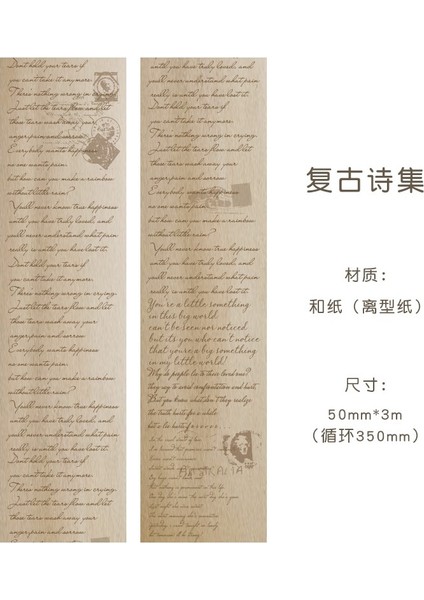 Don't hold your tears if
you can't take it anymore.
There's nothing wrong in crying.
Just let the tears flow and let
these tears wash away your
anger pain and sorrow.
Everybody wants happiness
no one wants pain.
but how can you make a rainbow
without little rain?
You'll never know true happiness
until you have truly loved, and
you'll never understand what pain
really is until you have lost it.
Don't hold your tears if
you can't take it anymore.
There's nothing wrong in crying.
Just let the tears flow and let
these tears wash away your
anger pain and sorrow
Everybody wants happiness
no one wants pain.
but how can you make a rainbow
without little rain?
You'll never know true happiness
until you have truly loved, and
you'll never understand what pain
really is until you have lost it.
Don't hold your tears if
you can't take it anymore.
There's nothing wrong in crying.
Just let the tears flow and let
these tears wash away your
anger pain and sorrow
Everybody wants happiness
until you have truly loved, and
you'll never understand what pain
really is until you have lost it.
Don't hold your tears if
you can't take it anymore.
There's nothing wrong in crying.
Just let the tears flow and let
these tears wash away your
anger pain and sorrow.
Everybody wants happiness
no one wants pain.
but how can you make a rainbow
without little rain?
You'll never know true happiness
until you have truly loved, and
you'll never understand what pain
really is until you have lost it.
You're a little something
in this big world
can't be seen nor noticed
but it's you who can't notice
that you're a big something
in my little world!
Why do people lie to their loved ones?
they say to avoid confrontations and hurts.
But you know what dear? They realize
the truth hurts for a while
but a lie hurts forever
复古诗集
材质：
和纸（离型纸）
尺寸：
50mm*3m
（循环350mm）